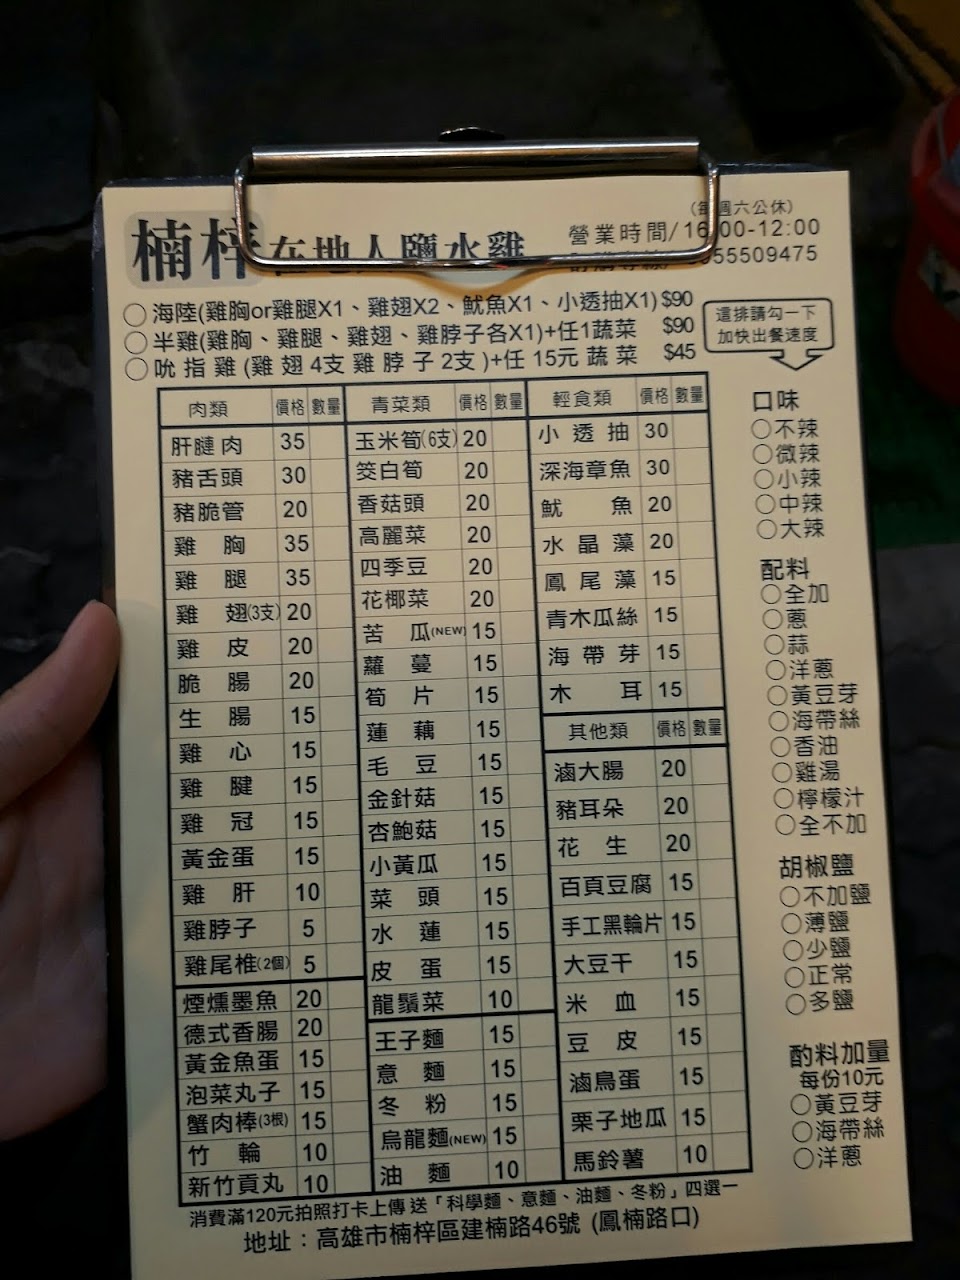 (每週六公休)
楠梓在地人鹽水雞
營業時間/16:00-12:00
55509475
○海陸(雞胸or雞腿X1、雞翅X2、魷魚X1、小透抽X1) $90
○半雞(雞胸、雞腿、雞翅、雞脖子各X1)+任1蔬菜 $90
○吮指雞(雞翅4支雞脖子2支)+任15元蔬菜 $45
這排請勾一下
加快出餐速度
肉類 價格 數量
肝腱肉 35
豬舌頭 30
豬脆管 20
雞胸 35
雞腿 35
雞翅(3支) 20
雞皮 20
脆腸 20
生腸 15
雞心 15
雞腱 15
雞冠 15
黃金蛋 15
雞肝 10
雞脖子 5
雞尾椎(2個) 5
煙燻墨魚 20
德式香腸 20
黃金魚蛋 15
泡菜丸子 15
蟹肉棒(3根) 15
竹輪 10
新竹貢丸 10
青菜類 價格 數量
玉米筍(6支) 20
筊白筍 20
香菇頭 20
高麗菜 20
四季豆 20
花椰菜 20
苦瓜(NEW) 15
蘿蔓 15
筍片 15
蓮藕 15
毛豆 15
金針菇 15
杏鮑菇 15
小黃瓜 15
菜頭 15
水蓮 15
皮蛋 15
龍鬚菜 10
王子麵 15
意麵 15
冬粉 15
烏龍麵(NEW) 15
油麵 10
輕食類 價格 數量
小透抽 30
深海章魚 30
魷魚 20
水晶藻 20
鳳尾藻 15
青木瓜絲 15
海帶芽 15
木耳 15
其他類 價格 數量
滷大腸 20
豬耳朵 20
花生 20
百頁豆腐 15
手工黑輪片 15
大豆干 15
米血 15
豆皮 15
滷鳥蛋 15
栗子地瓜 15
馬鈴薯 10
口味
○不辣
○微辣
○小辣
○中辣
○大辣
配料
○全加
○蔥
○蒜
○洋蔥
○黃豆芽
○海帶絲
○香油
○雞湯
○檸檬汁
○全不加
胡椒鹽
○不加鹽
○薄鹽
○少鹽
○正常
○多鹽
酌料加量
每份10元
○黃豆芽
○海帶絲
○洋蔥
消費滿120元拍照打卡上傳 送「科學麵、意麵、油麵、冬粉」四選一
地址：高雄市楠梓區建楠路46號 (鳳楠路口)